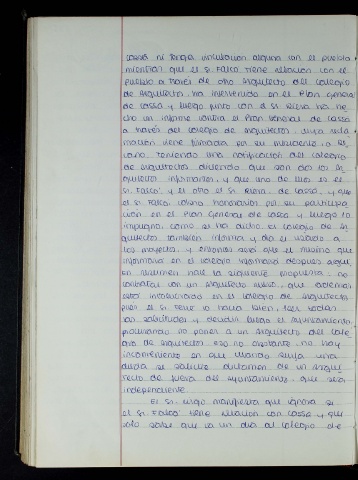 Cassà, ni tenga vinculacion alguna con el pueblo
mientras que el Sr. Falcó tiene relación con el
pueblo a través de otro arquitecto del colegio
de arquitectos, ha intervenido en el Plan General
de Cassà y luego junto con el Sr. Riera ha he
cho un informe contra el Plan General de Cassà
a través del colegio de arquitectos, cuya
mación viene firmada por
teniendo una notificación del colegio
de arquitectos diciendo que son dos los ar
quitectos informantes, y que uno de ellos es el
Sr. Falcó y el otro el Sr. Riera de Cassà, y que
el Sr. Falcó cobró honorarios por su participa
ción en el Plan General de Cassà y luego lo
impugnó, como se ha dicho el colegio de ar
quitectos también informa y da el visado a
los proyectos, y entonces será que el mismo que
informaría en el colegio informará después aquí.
En resumen hace la siguiente propuesta: no
contratar con un arquitecto nuevo, que además
esté introducido en el colegio de arquitectos
pues si
las solicitudes y decida luego el Ayuntamiento,
procurando no poner a un arquitecto del cole
gio de arquitectos; eso no obstante, no hay
inconveniente en que cuando surja una
duda se solicite dictamen de un arqui
tecto de fuera del ayuntamiento, que sea
independiente.
El Sr. manifiesta que ignora si
el Sr. Falcó tiene relación con Cassà y que
sólo sabe que va un día al colegio de